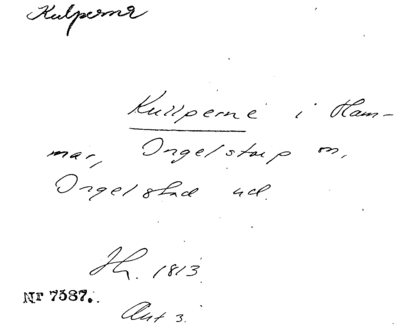 Kulperne
Kullperne i Ham-
mar, Ingelstorp m,
Ingelstad hd.
Jh. 1813
Nr 7587.
Ant 3.